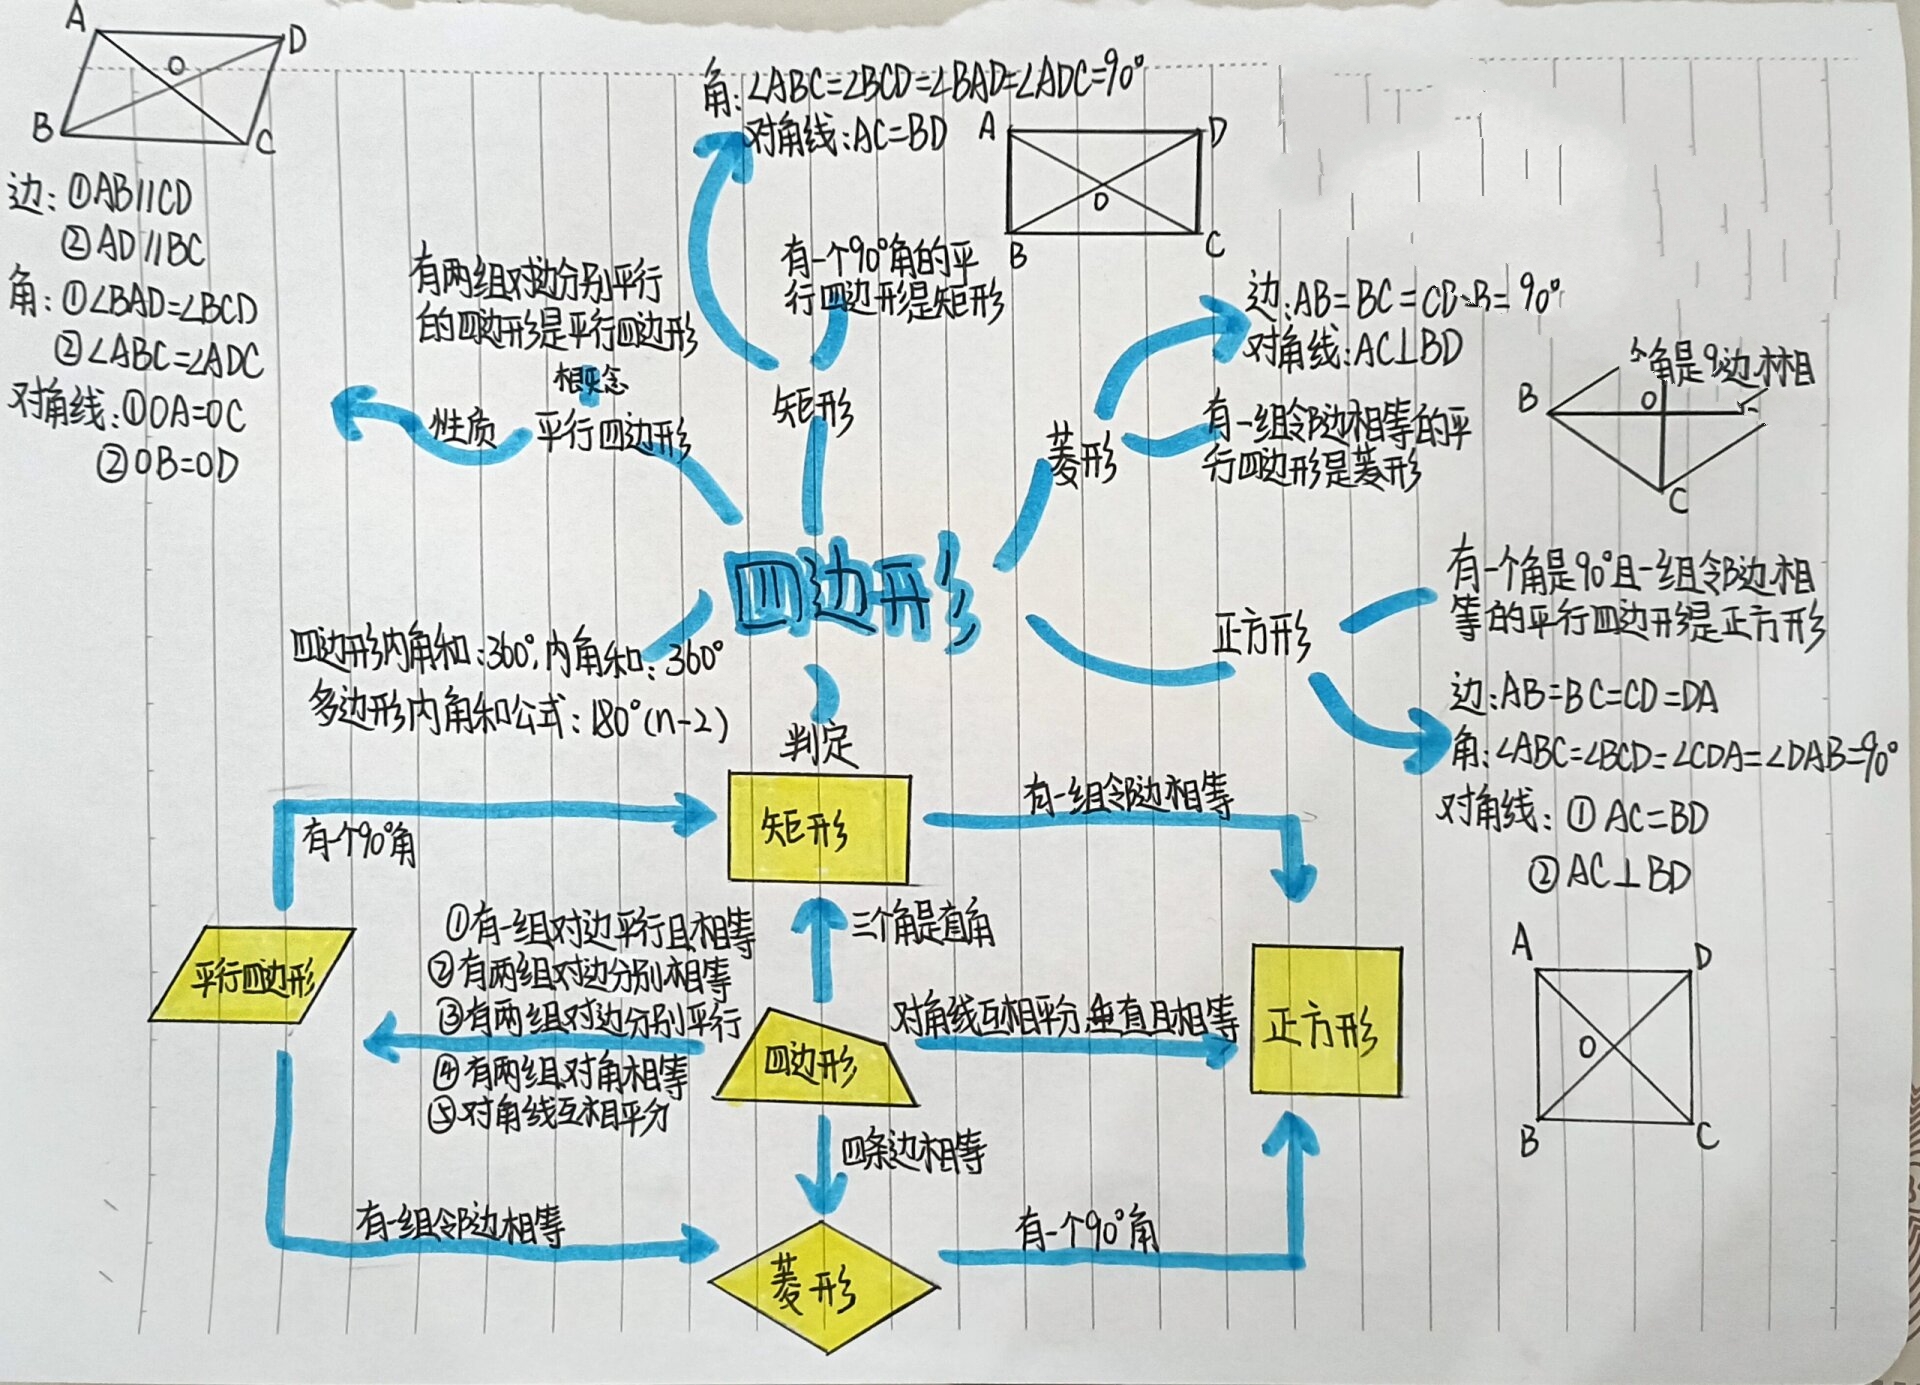 A
D
O
B
C
边:①AB//CD
②AD//BC
角:①∠BAD=∠BCD
②∠ABC=∠ADC
对角线:①OA=OC
②OB=OD
角:∠ABC=∠BCD=∠BAD=∠ADC=90°
对角线:AC=BD
A
D
O
B
C
有两组对边分别平行
的四边形是平行四边形
概念
性质
平行四边形
有一个90°角的平
行四边形是矩形
矩形
边:AB=BC=CD
=90°
对角线:AC⊥BD
菱形
有一组邻边相等的平
行四边形是菱形
个角是
边
相
B
O
C
四边形
四边形内角和:360°,内角和:360°
多边形内角和公式:180°(n-2)
正方形
有一个角是90°且一组邻边相
等的平行四边形是正方形
边:AB=BC=CD=DA
角:∠ABC=∠BCD=∠CDA=∠DAB=90°
对角线:①AC=BD
②AC⊥BD
A
D
O
B
C
判定
矩形
有一个90°角
有一组邻边相等
平行四边形
①有一组对边平行且相等
②有两组对边分别相等
③有两组对边分别平行
④有两组对角相等
⑤对角线互相平分
三个角是直角
四边形
对角线互相平分.垂直且相等
正方形
四条边相等
有一组邻边相等
菱形
有一个90°角